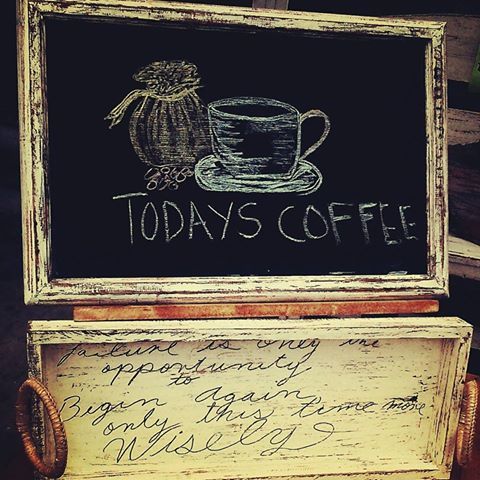 TODAYS COFFEE
failure is only the
opportunity
to
Begin again,
only this time more
Wisely